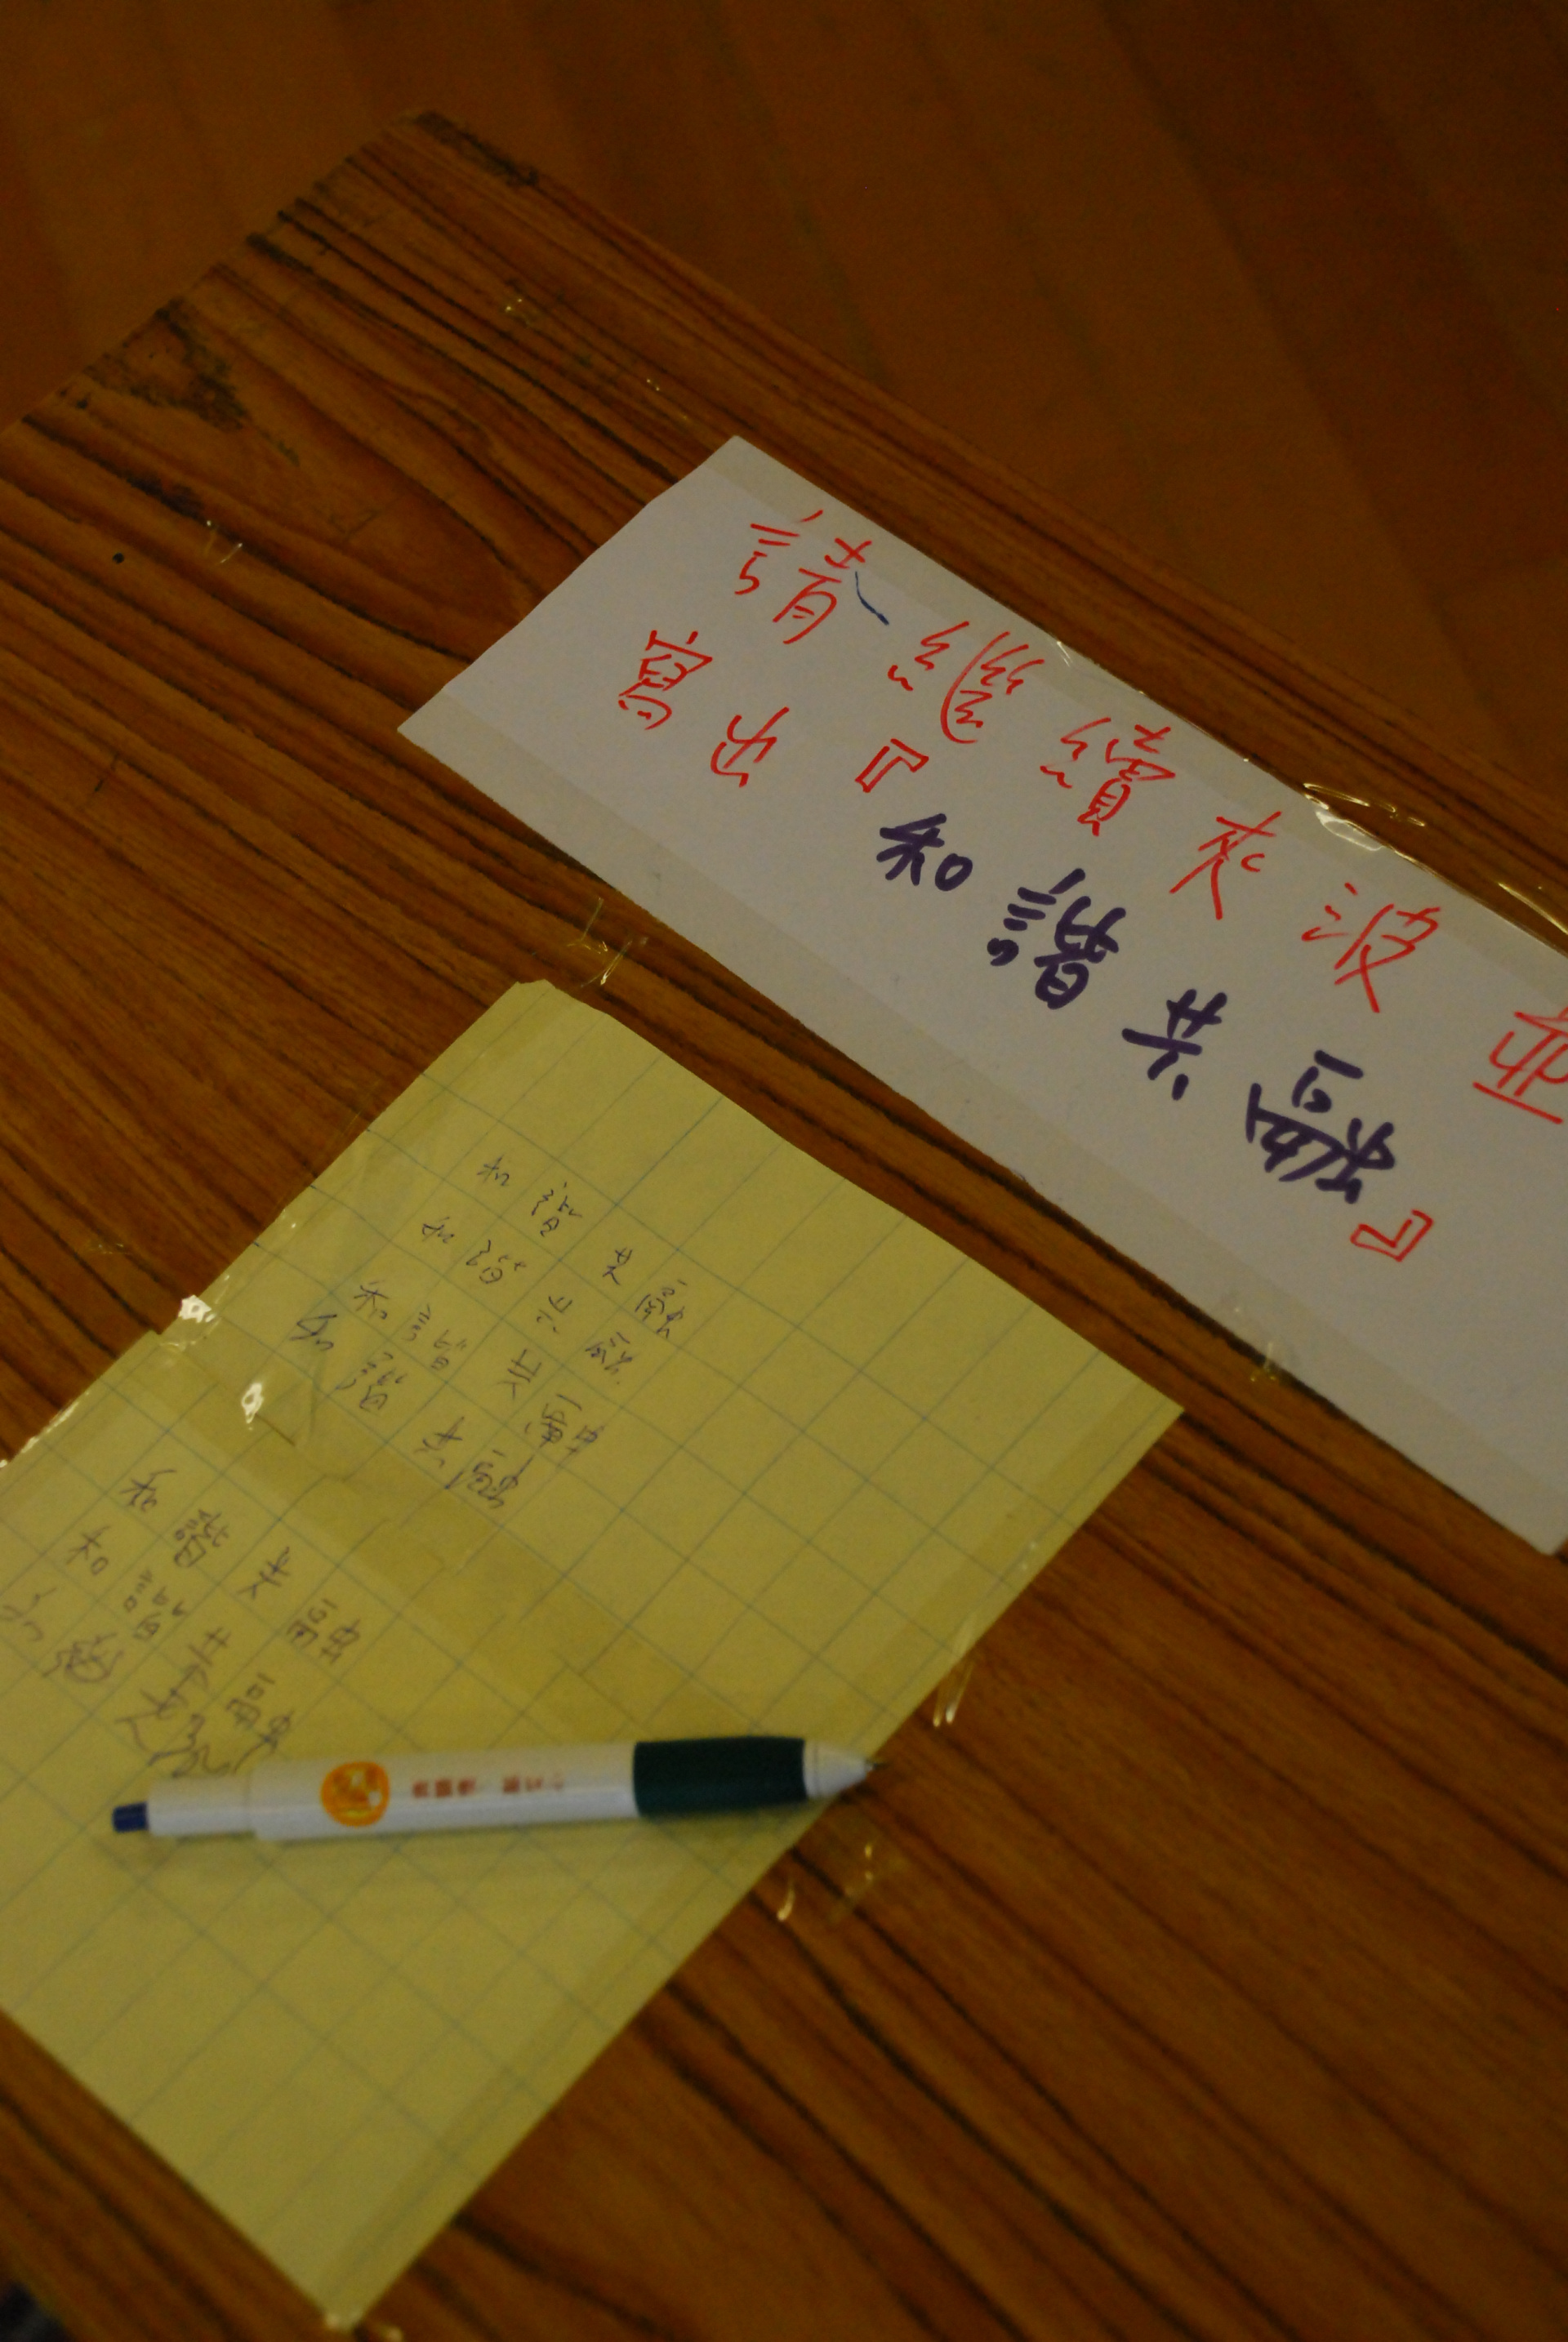 請繼續夾波並
寫出『和諧共融』
和諧共融
和諧共融
和諧共融
和諧共融
和諧共融
和諧共融